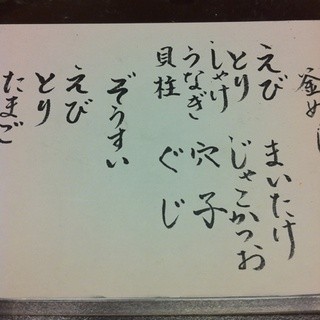 釜めし
えび　まいたけ
とり　じゃこかつお
しゃけ
うなぎ　穴子
貝柱　ぐじ
ぞうすい
えび
とり
たまご